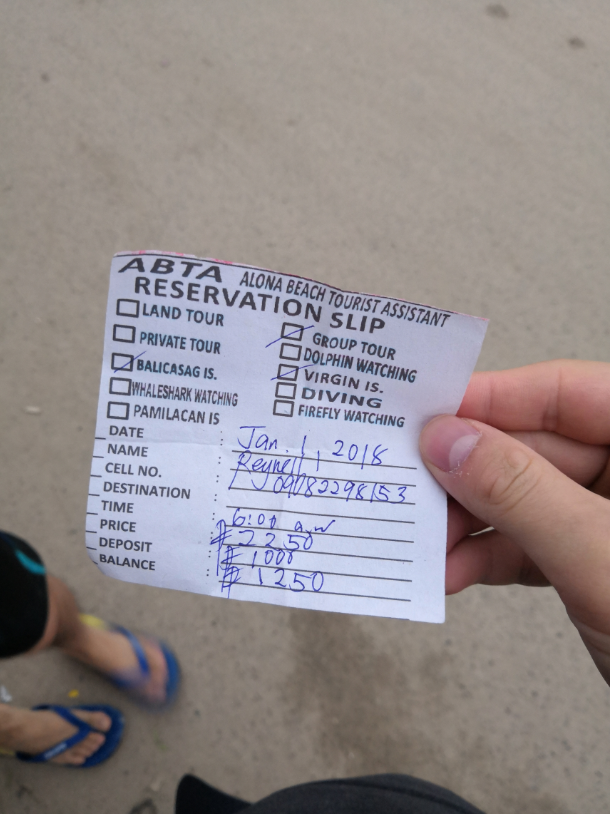 ABTA ALONA BEACH TOURIST ASSISTANT
RESERVATION SLIP
LAND TOUR
PRIVATE TOUR
BALICASAG IS.
WHALESHARK WATCHING
PAMILACAN IS
GROUP TOUR
DOLPHIN WATCHING
VIRGIN IS.
DIVING
FIREFLY WATCHING
DATE : Jan. 1, 2018
NAME : Reynell
CELL NO. : 09082298153
DESTINATION
TIME : 6:00 am
PRICE : ₱2250
DEPOSIT : ₱1000
BALANCE : ₱1250